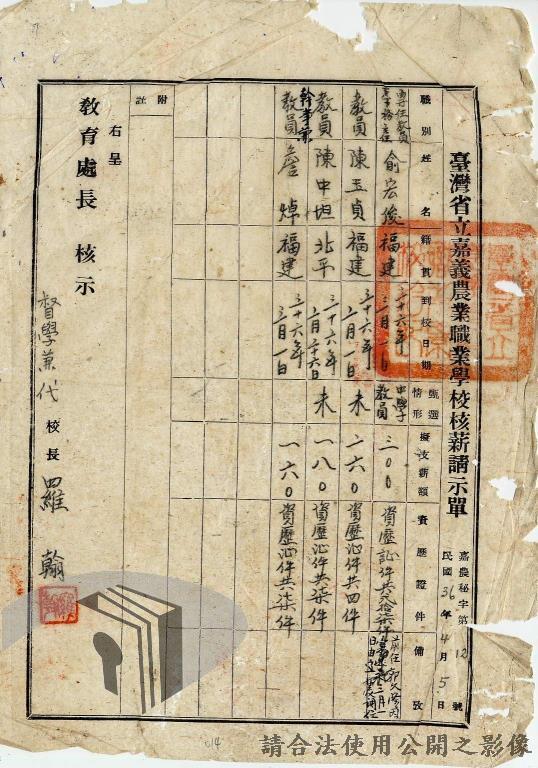 臺灣省立嘉義農業職業學校核薪請示單
嘉農秘字第12號
民國36年4月5日
職別 姓名 籍貫 到校日期 甄選情形 擬支薪額 資歷證件 備攷
專任教員 俞宏俊 福建 三十六年三月一日 中學教員 三〇〇 資歷証件共
教員 陳玉貞 福建 三十六年 月一日 未 一六〇 資歷証件共四件
教員 陳中垣 北平 三十六年 月二十六日 未 一八〇 資歷証件共柒件
教員 詹焯 福建 三十六年三月一日 一六〇 資歷証件共柒件
附註
右呈
教育處長 核示
督學兼代校長 羅翰
014
請合法使用公開之影像